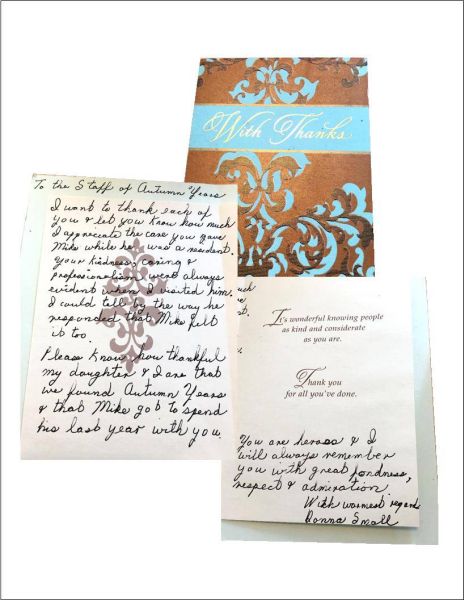 With Thanks
To the Staff of Autumn Years
I want to thank each of
you & let you know how much
I appreciate the care you gave
Mike while he was a resident.
Your kindness, caring &
professionalism were always
evident when I visited him.
I could tell by the way he
responded that Mike felt
it too.
Please know how thankful
my daughter & I are that
we found Autumn Years
& that Mike got to spend
his last year with you.
It's wonderful knowing people
as kind and considerate
as you are.
Thank you
for all you've done.
You are heroes & I
will always remember
you with great fondness,
respect & admiration.
With warmest regards
Donna Small